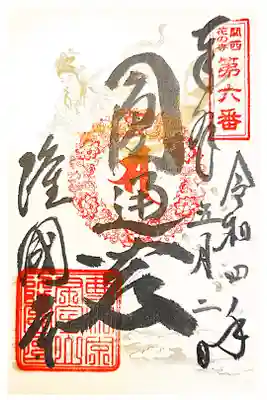 関西
花の寺
第六番
奉拝
令和四年
五月二日
圓通殿
隆國寺